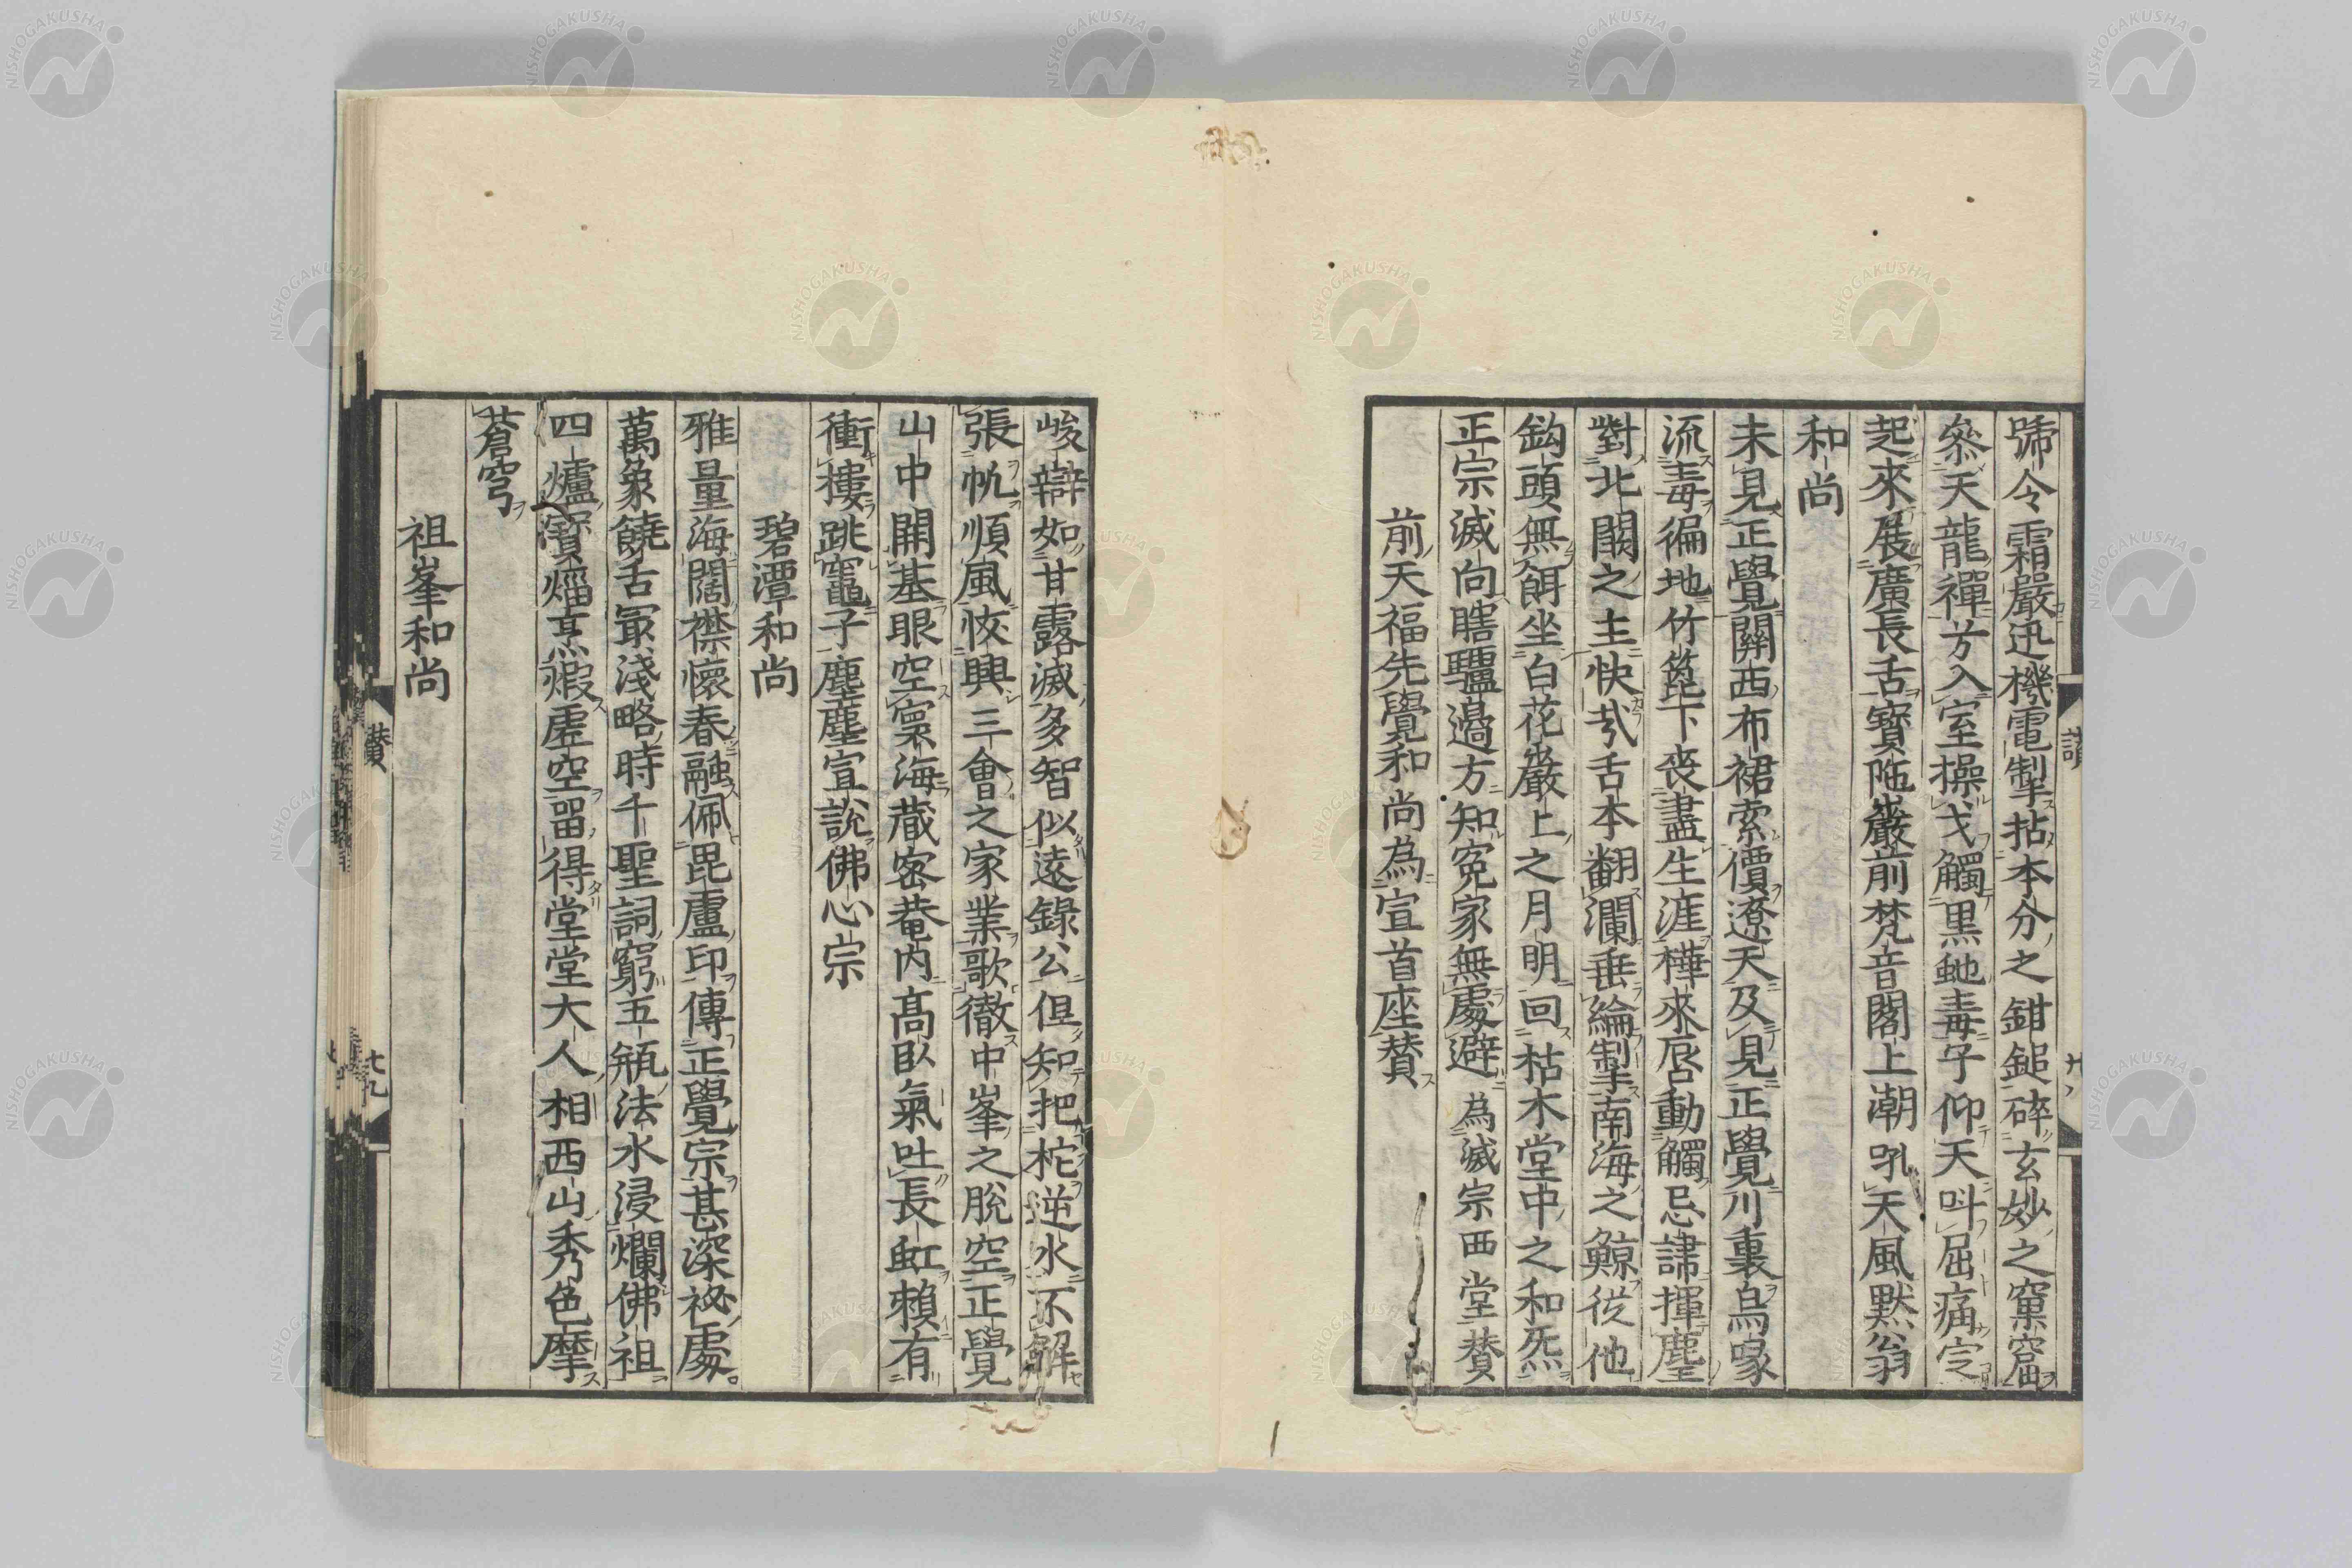 號令霜嚴迅機電掣拈本分之鉗鎚碎玄妙之窠窟
叅天龍禪方入室操戈觸黒虵毒牙仰天叫屈痛定
起來展廣長舌寳陁巖前梵音閣上潮吼天風黙翁
和尚
未見正覺關西布裙索價遼天及見正覺川裏烏喙
流毒徧地竹箆下丧盡生涯樺來唇動觸忌諱揮麈
對北闕之主快哉舌本翻瀾垂綸掣南海之鯨從他
鈎頭無餌坐白花巖上之月明回枯木堂中之和炁
正宗滅向瞎驢邉方知寃家無處避 為滅宗西堂賛
前天福先覺和尚為宣首座賛
峻辯如甘露滅多智似遠錄公但知把柁逆水不解
張帆順風恢興三會之家業歌徹中峯之脫空正覺
山中開基眼空寰海蔵密菴内髙臥氣吐長虹賴有
衝樓跳竈子塵塵宣說佛心宗
碧潭和尚
雅量海闊襟懷春融佩毘盧印傳正覺宗甚深祕處
萬象饒舌冣淺略時千聖詞窮五瓶法水浸爛佛祖
四爐寳熖烹煆虚空畱得堂堂大人相西山秀色摩
蒼穹
祖峯和尚
賛
七九